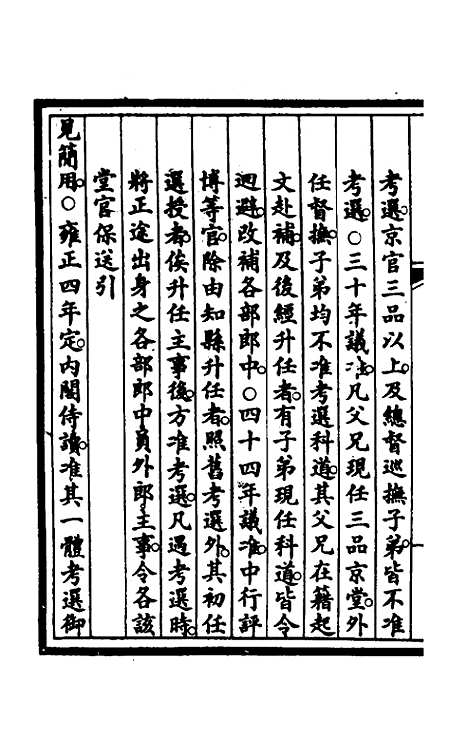 考選。京官三品以上。及總督巡撫子弟。皆不准
考選。○三十年議准。凡父兄現任三品京堂。外
任督撫。子弟均不准考選科道。其父兄在籍起
文赴補。及後經升任者。有子弟現任科道。皆令
迴避。改補各部郎中。○四十四年議准。中行評
博等官。除由知縣升任者。照舊考選外。其初任
選授者。俟升任主事後。方准考選。凡遇考選時。
將正途出身之各部郎中員外郎主事。令各該
堂官保送引
見簡用。○雍正四年定。內閣侍讀。准其一體考選御